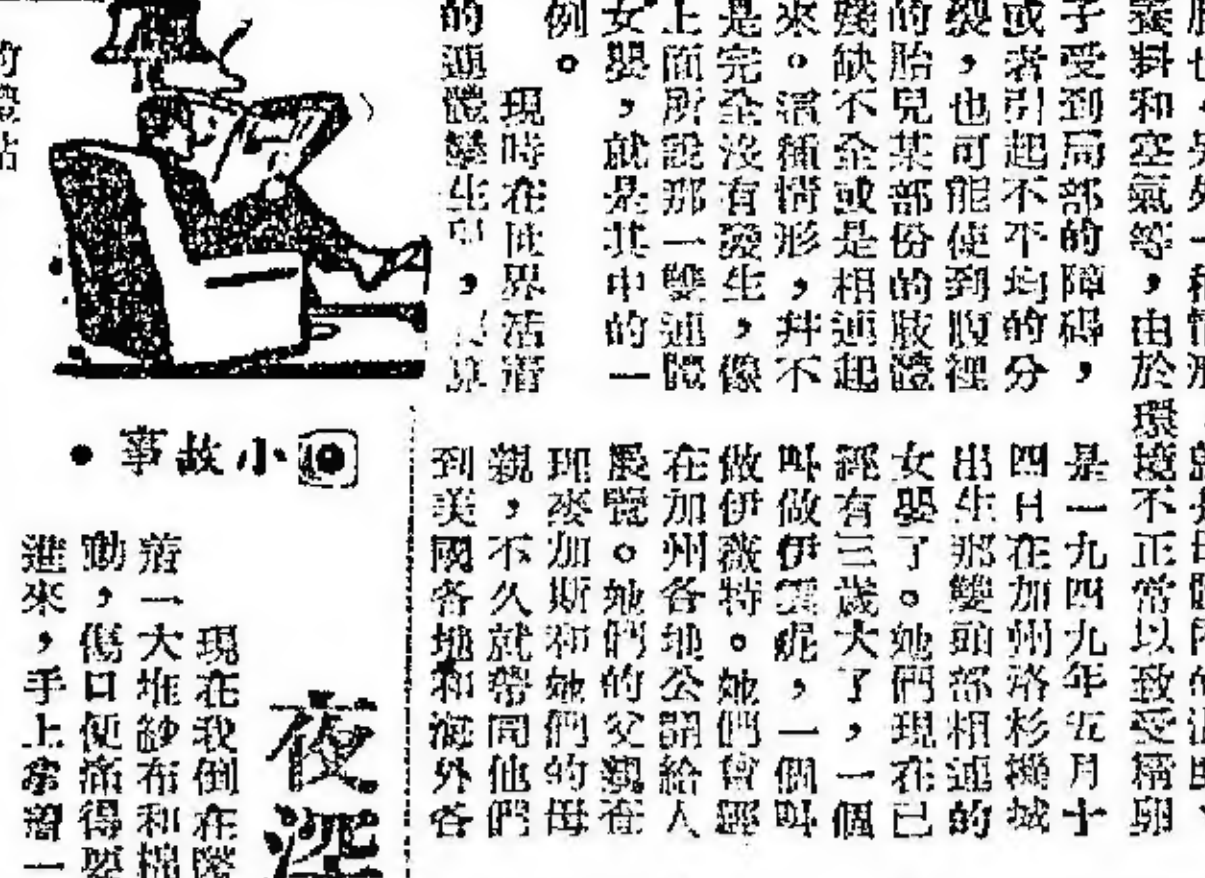 養料和空氣等，由於環境不正常以致受精卵
子受到局部的障碍，
或者引起不平均的分
裂，也可能使到腹裡
的胎兒某部份的肢體
殘缺不全或是相連起
來。這種情形，并不
是完全沒有發生，像
上面所說那一雙連體
女嬰，就是其中的一
例。
現時在世界活着
的連體孿生中，
是一九四九年五月十
四日在加州洛杉機城
出生那雙頭部相連的
女嬰了。她們現在已
經有三歲大了，一個
叫做伊 妮，一個叫
做伊薇特。她們曾經
在加州各地公開給人
展覽。她們的父親查
理麥加斯和她們的母
親，不久就帶同他們
到美國各地和海外各
小故事
夜深
現在我倒在
着一大堆紗布和棉
動，傷口便痛得要
進來，手上拿着一